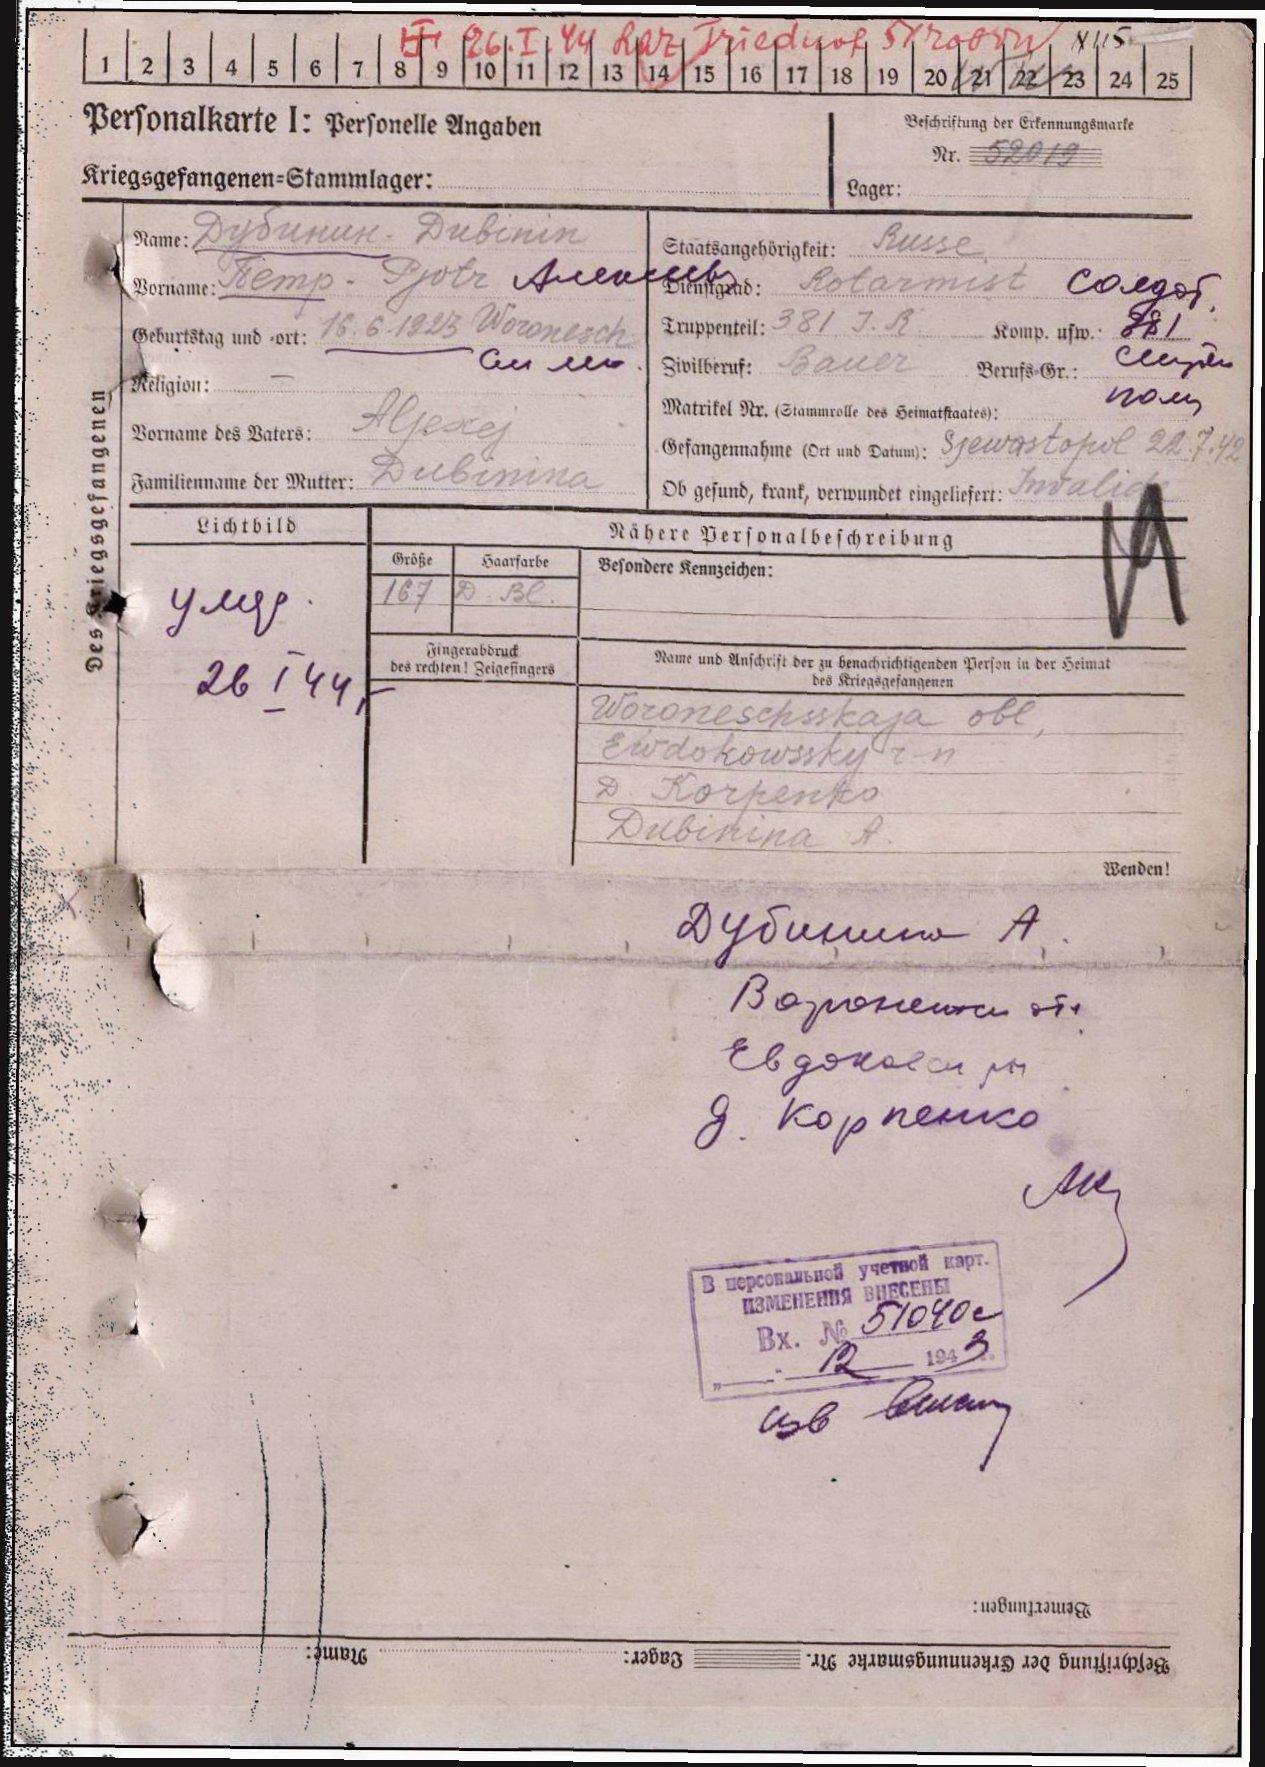 26.I.44 Laz. Friedhof
1 2 3 4 5 6 7 8 9 10 11 12 13 14 15 16 17 18 19 20 21 22 23 24 25
Personalkarte I: Personelle Angaben
Beschriftung der Erkennungsmarke
Nr. 52019
Kriegsgefangenen=Stammlager:
Lager:
Des Kriegsgefangenen
Name: Дубинин - Dubinin
Vorname: Петр - Pjotr Алексеев
Geburtstag und -ort: 16.6.1923 Woronesch
Religion: —
Vorname des Vaters: Aljexej
Familienname der Mutter: Dubinina
Staatsangehörigkeit: Russe
Dienstgrad: Rotarmist Солдат
Truppenteil: 381 J.R Komp. usw.: 381
Zivilberuf: Bauer Berufs=Gr.:
Matrikel Nr. (Stammrolle des Heimatstaates):
Gefangennahme (Ort und Datum): Sjewastopol 22.7.42
Ob gesund, krank, verwundet eingeliefert: Invalide
Lichtbild
Nähere Personalbeschreibung
Größe
Haarfarbe
Besondere Kennzeichen:
167 D. Bl.
умер
26 I 44 г
Fingerabdruck
des rechten! Zeigefingers
Name und Anschrift der zu benachrichtigenden Person in der Heimat
des Kriegsgefangenen
Woroneschsskaja obl,
Ewdokowssky r-n
D. Korpenko
Dubinina A.
Wenden!
Дубинина А.
Воронежск об.
Евдоковск рн
д. Корпенко
В персональной учетной карт.
ИЗМЕНЕНИЯ ВНЕСЕНЫ
Вх. № 51040с
12 1943 г.
Bemerkungen:
Beschriftung der Erkennungsmarke Nr. Lager: Name: